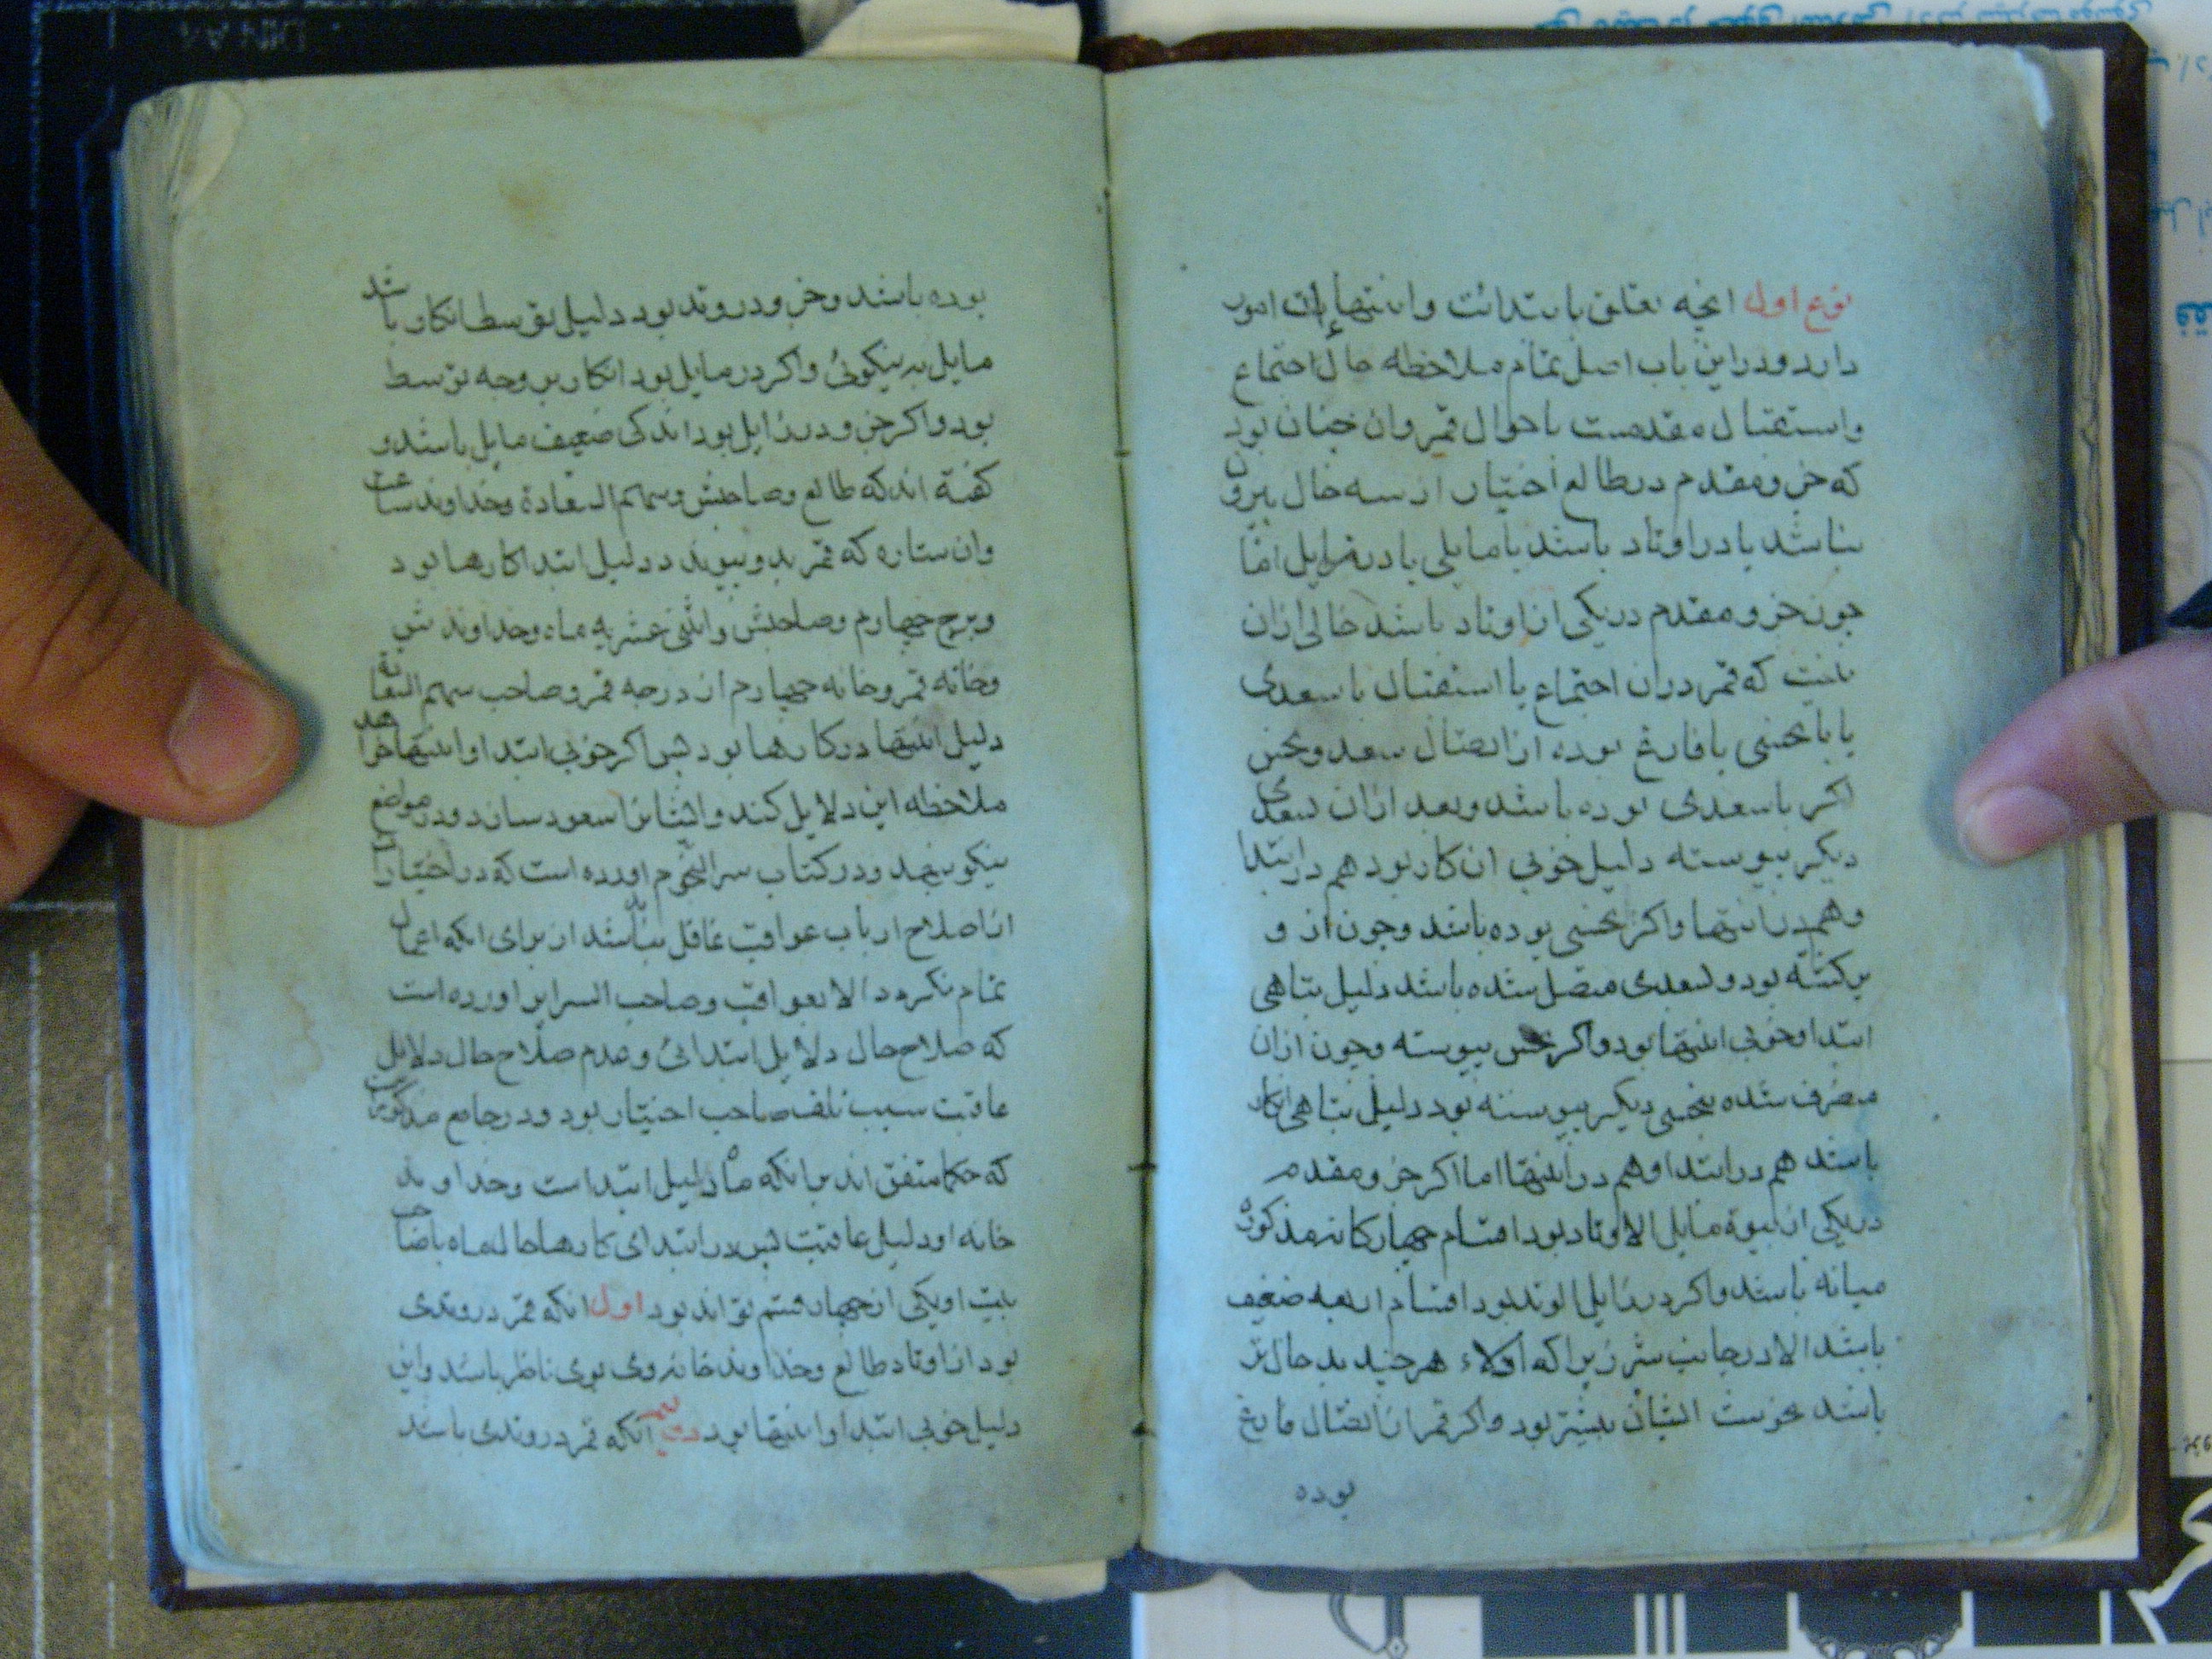 نوع اول انچه تعلق بابتدائت وانتهای امور
دارد ودر این باب اصل تمام ملاحظه حال اجتماع
واستقبال مقدمست با حوال قمر وان چنان بود
که جزو مقدم در طالع اختیار از سه حال بیرون
نباشد یا در اوتاد باشد یا مایلی یا در زایل اما
چون جزو مقدم در یکی از اوتاد باشد خالی ازان
نیت که قمر دران اجتماع یا استقبال با سعدی
یا با نحسی یا فارغ بوده از اتصال سعد ونحس
اکر با سعدی بوده باشد وبعد ازان بسعدی
دیکر پیوسته دلیل خوبی ان کار بود هم در ابتدا
وهم در انتها واکر نحسی بوده باشد وچون از و
برکشته بود وبسعدی متصل شده باشد دلیل تباهی
ابتدا وخوبی انتها بود واکر نحس پیوسته وچون ازان
منصرف شده بنحسی دیکر پیوسته بود دلیل تباهی انکار
باشد هم در ابتدا وهم در انتها اما اکر جزو مقدم
در یکی از بیوة مایل الاوتاد بود اقسام چهارکانه مذکوره
میانه باشد واکر در زایل الوتد بود اقسام اربعه ضعیف
باشد الا در جانب شر زیرا که اولاء هر چند بد حال تر
باشد نحوست ایشان بیشتر بود واکر قمر از اتصال فارغ
بوده
بوده باشد وجزو در وتد بود دلیل توسط انکار باشد
مایل به نیکوئی واکر در مایل بود انکار بر وجه توسط
بود واکر جزو در زایل بود اندکی ضعیف مایل باشد و
کفته اند که طالع وصاحبش وسهم السعادة وخداوند ساعت
وان ستاره که قمر بدو پیوندد دلیل ابتدا کارها بود
وبرج چهارم وصاحبش واثنی عشریه ماه وخداوندش
وخانه قمر وخانه چهارم از درجه قمر وصاحب سهم السعادة
دلیل انتها در کارها بود پس اکر خوبی ابتدا وانتها خواهد
ملاحظه این دلایل کند وایشانرا سعود ساند ودر مواضع
نیکو نهد ودر کتاب سر النجوم اورده است که در اختیارات
از اصلاح ارباب عواقب غافل نباشد از برای انکه اعمال
تمام نکردد الا بعواقب وصاحب السرایر اورده است
که صلاح حال دلایل ابتدائی وعدم صلاح حال دلایل
عاقبت سبب تلف صاحب اختیار بود ودر جامع مذکورست
که حکما متفق اند برانکه ماه دلیل ابتداست وخداوند
خانه او دلیل عاقبت پس در ابتدای کارها حال ماه با صاحب
بیت او یکی از چهار قسم تواند بود اول انکه قمر در وتدی
بود از اوتاد طالع وخداوند خانه وی بوی ناظر باشد واین
دلیل خوبی ابتدا وانتها بود دویم انکه قمر در وتدی باشد